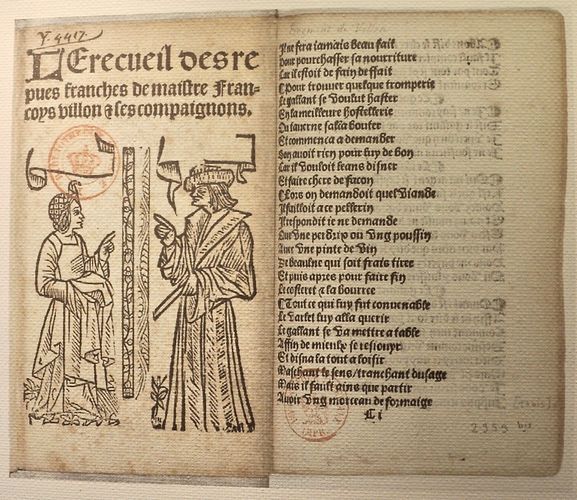 Y. 4417.
LE recueil des re
pues franches de maistre Fran-
coys villon & ses compaignons.
Il ne fera iamais beau fait
Pour pourchasser sa nourriture
Car il estoit de fain deffait
Pour trouver quelque tromperie
Le gallant se voulut haster
En la meilleure hostelerie
Ou taverne salla bouter
Et commenca a demander
Son avoit rien pour luy de bon
Car il vouloit leans disner
Et faire chere de facon
Lors on demandoit quel viande
Il failloit a ce pellerin
Il respondit ie ne demande
Que une perdrix ou ung poussin
Avec une pinte de vin
De beaulne qui soit frais tire
Et puis apres pour faire fin
Le costeret a la bource
Tout ce qui luy fut convenable
Le varlet luy alla querir
Le gallant se va mettre a table
Affin de mieulx se resiouyr
Et disna la tout a loisir
Maschant le sens/tranchant dusage
Mais il fault ains que partir
Avoir ung morceau de formaige
C i
2959 bis